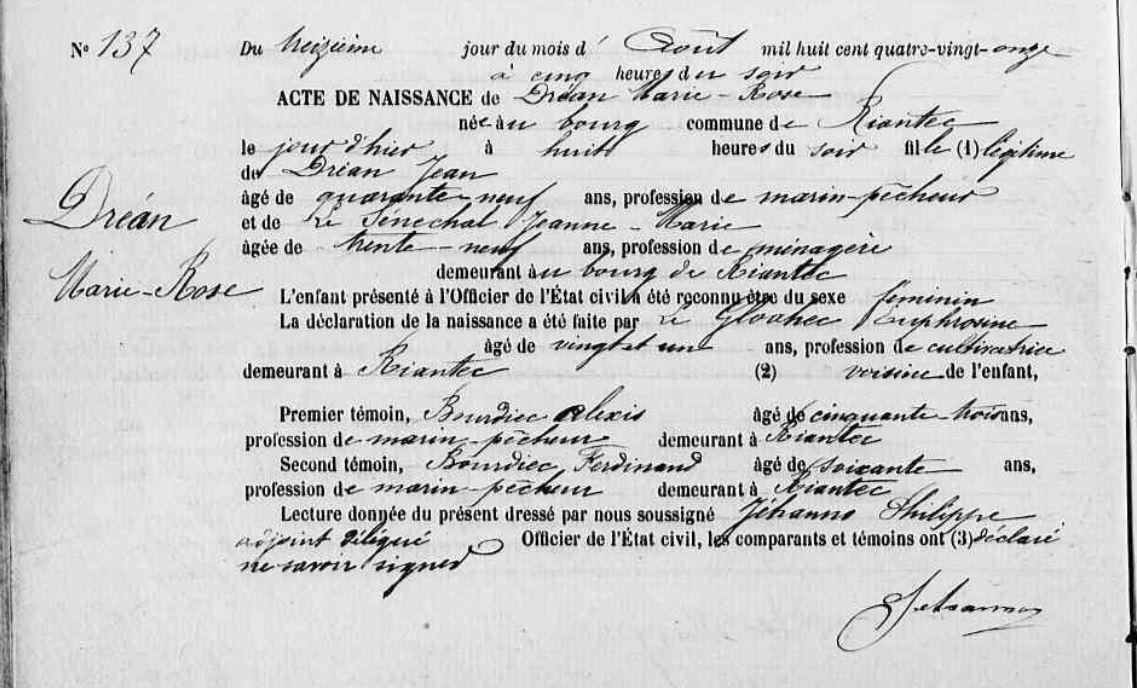 N° 137 Du treizième jour du mois d' Août mil huit cent quatre-vingt-onze
à cinq heures du soir
ACTE DE NAISSANCE de Dréan Marie-Rose
née au bourg commune de Riantec
le jour d'hier à huit heures du soir fille (1) légitime
de Dréan Jean
âgé de quarante-neuf ans, profession de marin-pêcheur
Dréan
et de Le Sénéchal Jeanne-Marie
âgée de trente-neuf ans, profession de ménagère
demeurant au bourg de Riantec
Marie-Rose
L'enfant présenté à l'Officier de l'État civil a été reconnu être du sexe féminin
La déclaration de la naissance a été faite par Le Gloahec Euphrosine
âgé de vingt et un ans, profession de cultivatrice
demeurant à Riantec (2) voisine de l'enfant,
Premier témoin, Bourdiec Alexis âgé de cinquante-trois ans,
profession de marin-pêcheur demeurant à Riantec
Second témoin, Bourdiec Ferdinand âgé de soixante ans,
profession de marin-pêcheur demeurant à Riantec
Lecture donnée du présent dressé par nous soussigné Jéhanno Philippe
adjoint délégué Officier de l'État civil, les comparants et témoins ont (3) déclaré
ne savoir signer
Jehanno